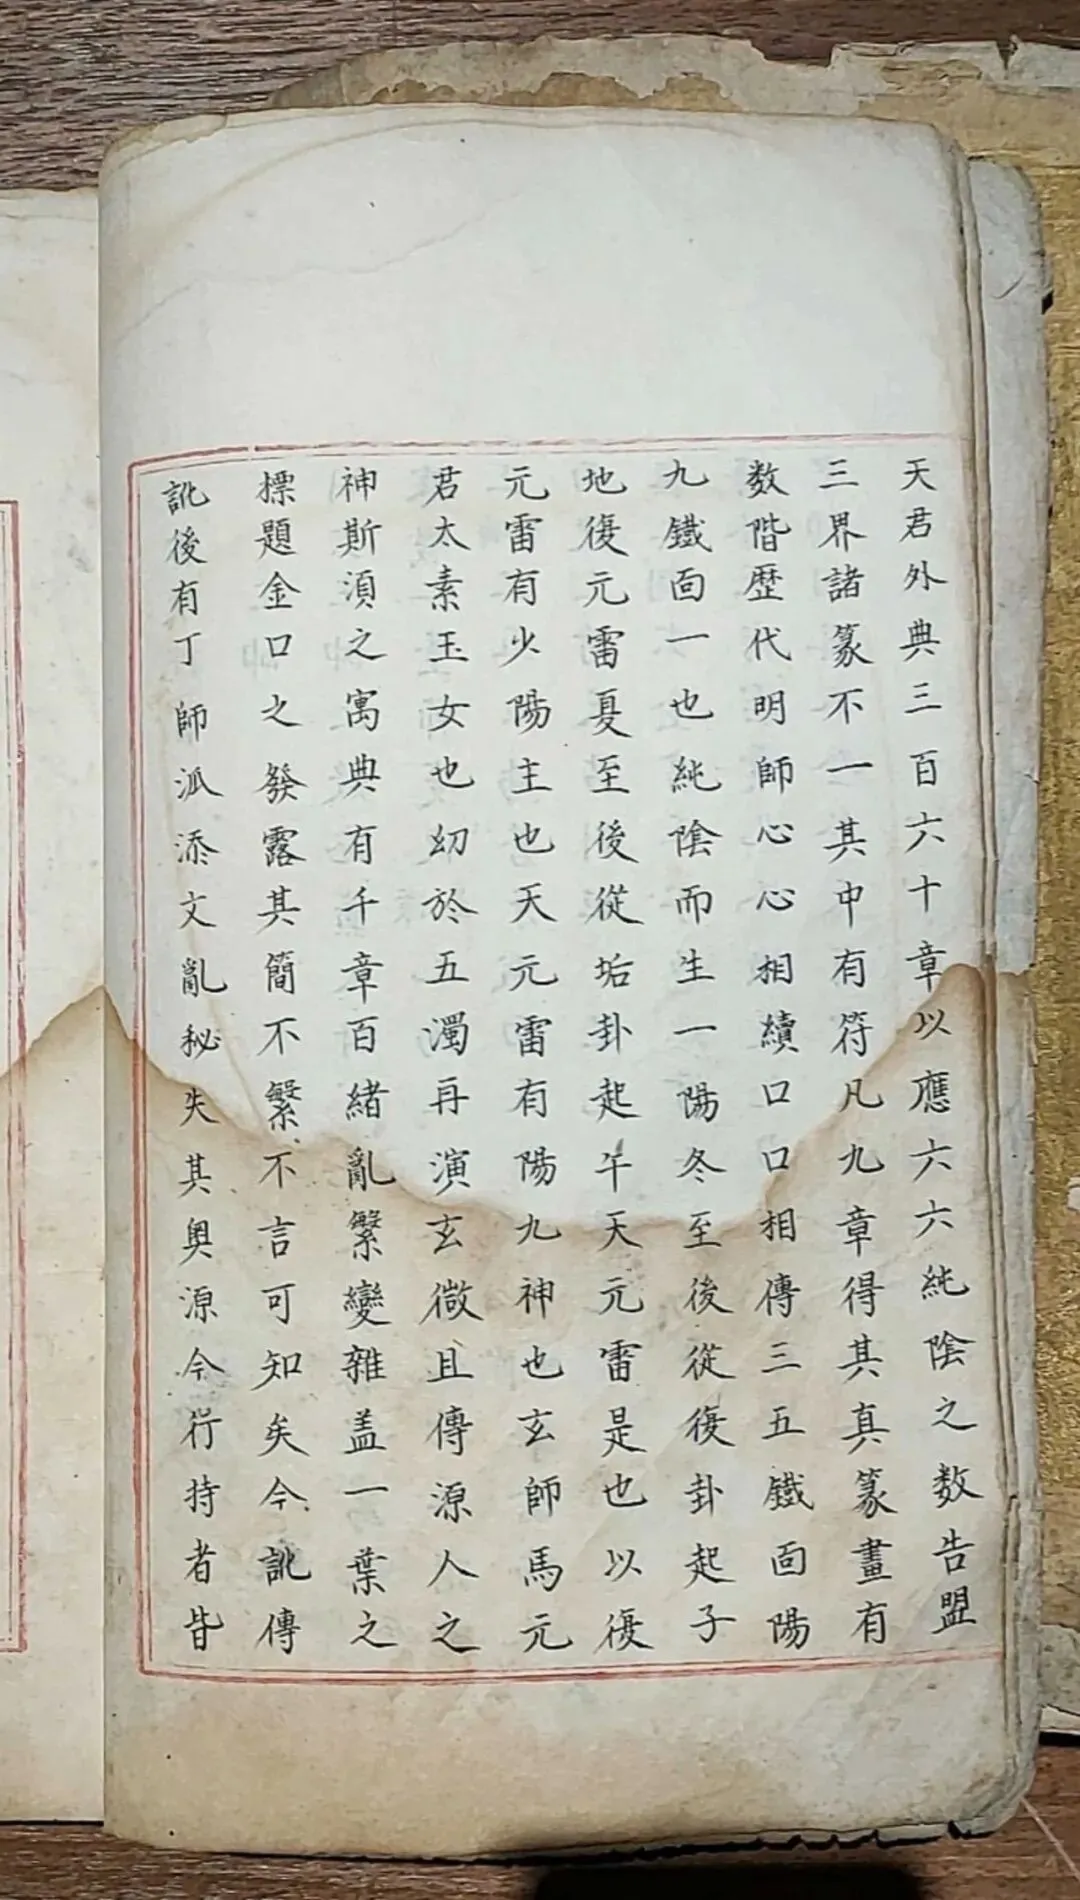 天君外典三百六十章以應六六純陰之数告盟
三界諸篆不一其中有符凡九章得其真篆畫有
数階歷代明師心心相續口口相傳三五鐵面陽
九鐵面一也純陰而生一陽冬至後從復卦起子
地復元雷夏至後從垢卦起午天元雷是也以復
元雷有少陽主也天元雷有陽九神也玄師馬元
君太素玉女也幼於五濁再演玄微且傳源人之
神斯湏之寓典有千章百緒亂繁變雜盖一葉之
標題金口之發露其簡不繁不言可知矣今訛傳
訛後有丁師泒添文亂秘失其奥源今行持者皆